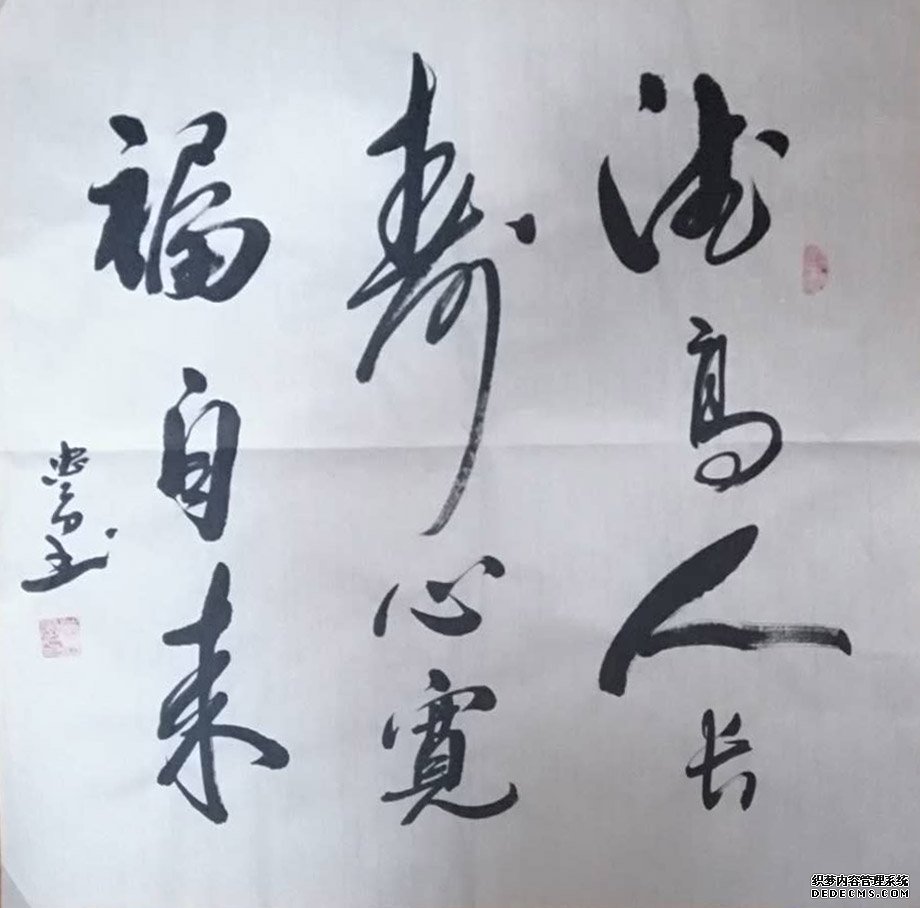 德高人长
寿心宽
福自来
织梦内容管理系统
DEDECMS.COM